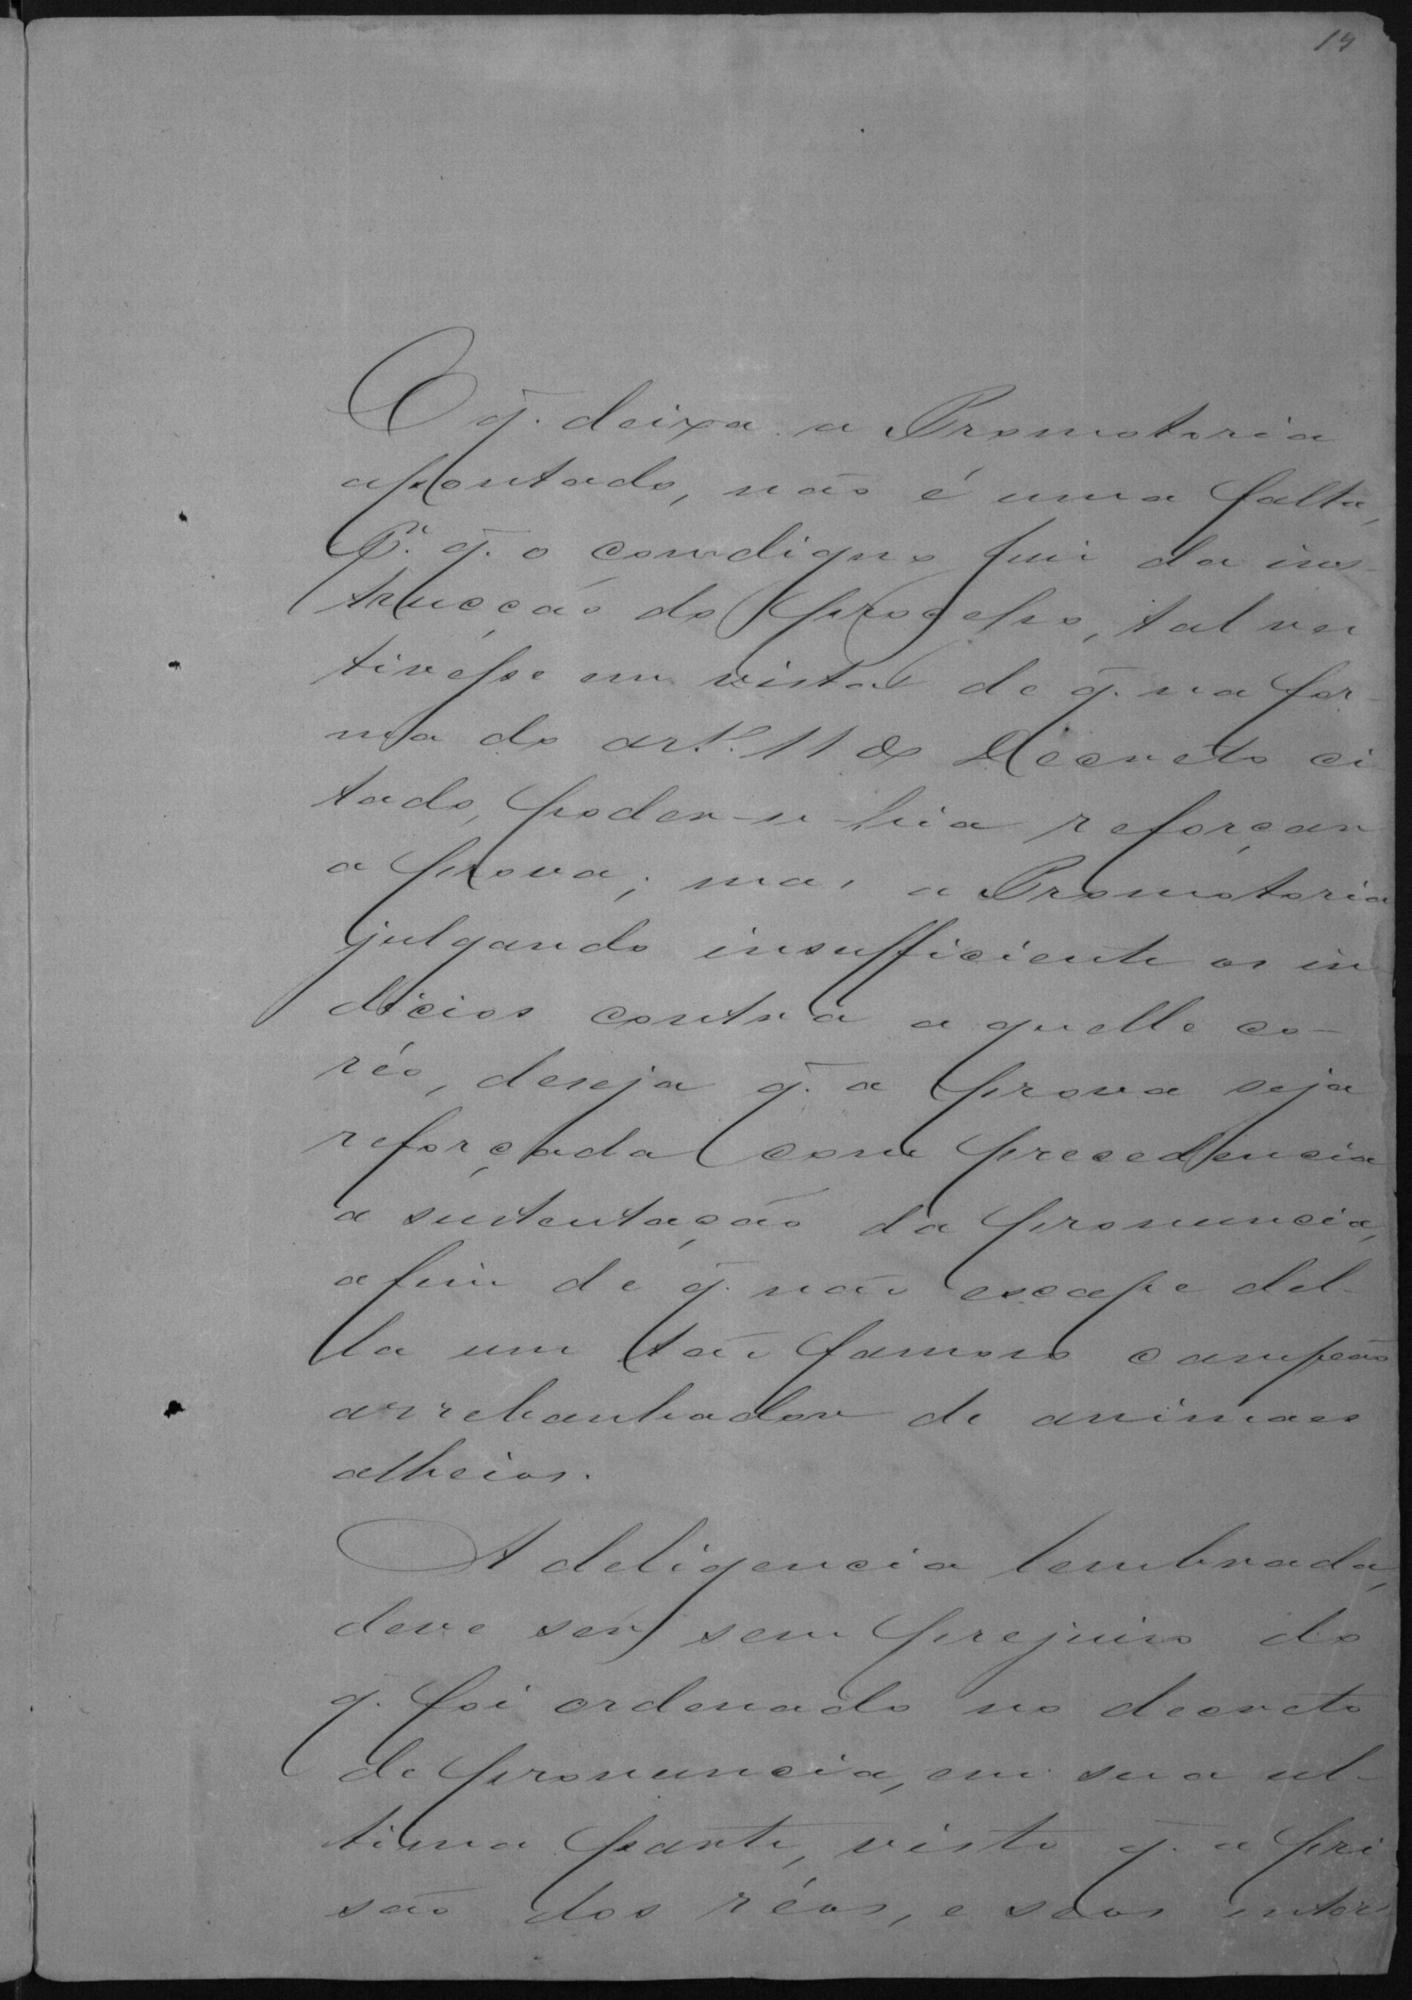 19
O q̃. deixa a Promotoria
apontado, não é uma falta,
P.r q̃. o condigno juiz da ins-
trucção do processo, talvez
tivesse em vista de q̃. na for-
ma do art.º 11 do Decreto ci
tado, poder-se-hia reforçar
a prova; mas a Promotoria
julgando insufficiente os in
dicios contra aquelle co-
réo, deseja q̃. a prova seja
reforçada com precedencia
a sustentação da pronuncia,
afim de q̃. não escape del-
la um tão famoso campeão
arrebanhador de animaes
alheios.
A deligencia lembrada,
deve ser sem prejuiso do
q. foi ordenado no decreto
de pronuncia, em sua ul-
tima parte, visto q̃. a pri
são dos réos, e seos